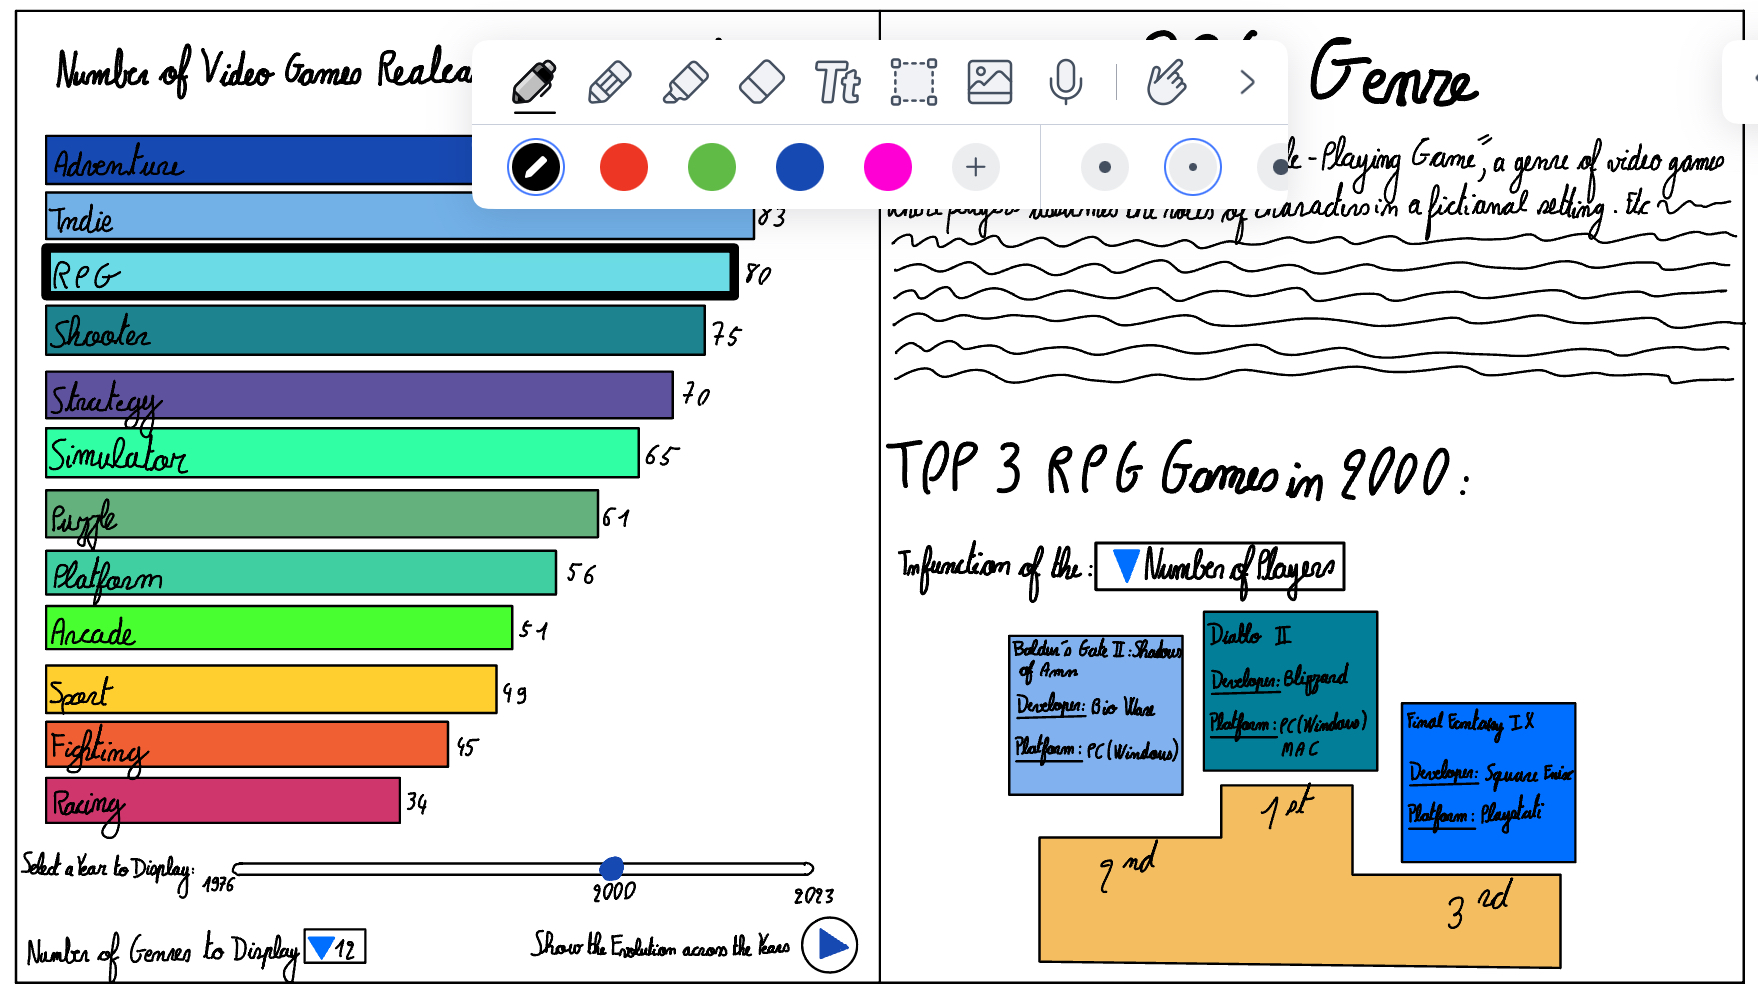 Number of Video Games
Adventure
Indie 83
RPG 80
Shooter 75
Strategy 70
Simulator 65
Puzzle 61
Platform 56
Arcade 51
Sport 49
Fighting 45
Racing 34
Select a Year to Display: 1976 2000 2023
Number of Genres to Display 12
Show the Evolution across the Years
Tt
Genre
-Playing Game", a genre of video games
where players assumes the roles of characters in a fictional setting. Etc
TOP 3 RPG Games in 2000:
Infunction of the: Number of Players
Baldur's Gate II: Shadows
of Amn
Developer: Bio Ware
Platform: PC (Windows)
Diablo II
Developer: Blizzard
Platform: PC (Windows)
MAC
Final Fantasy IX
Developer: Square Enix
Platform: Playstati
1st
2nd
3rd